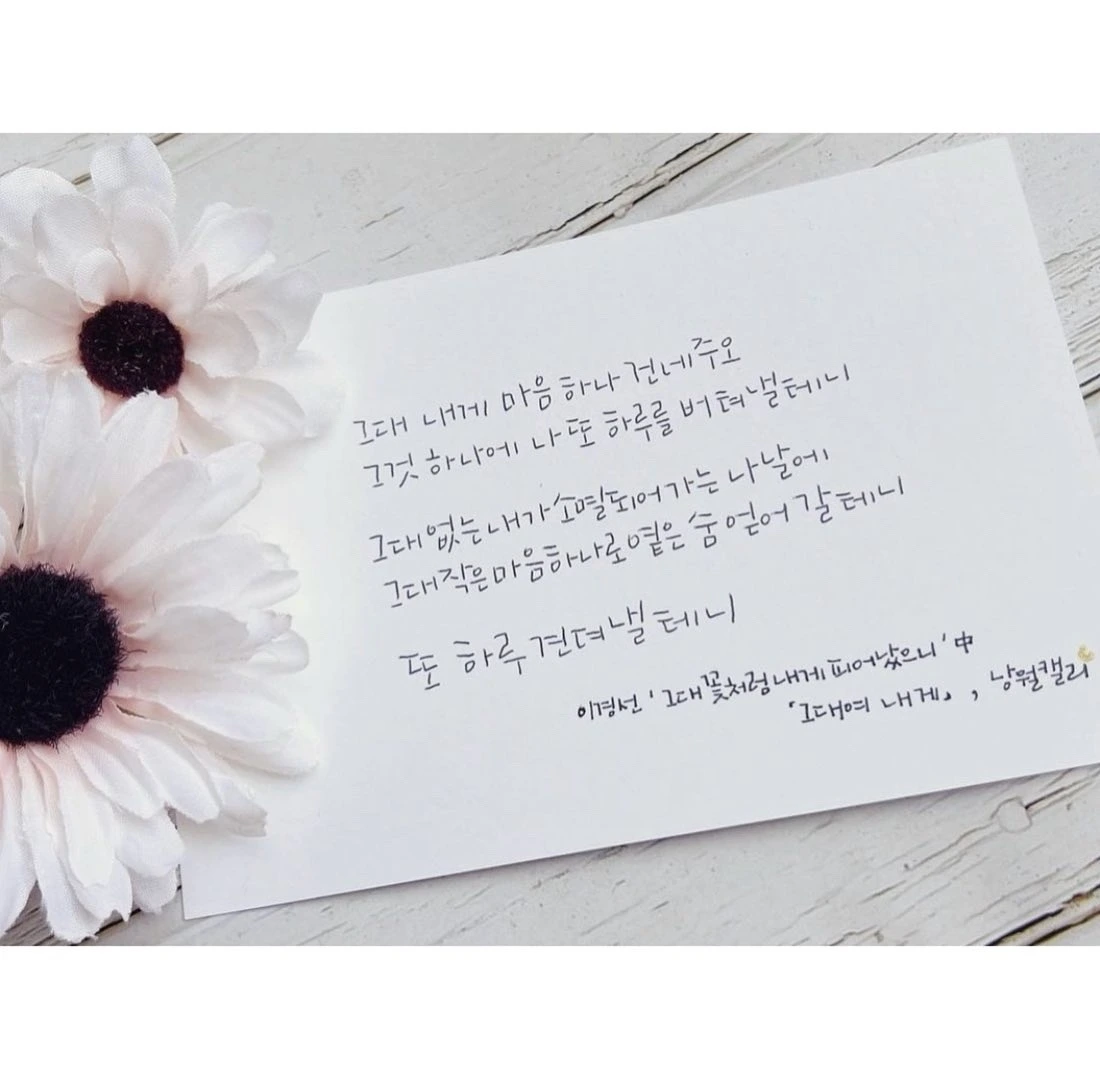 그대 내게 마음 하나 건네주오
그것 하나에 나 또 하루를 버텨낼테니
그대 없는 내가 소멸되어가는 나날에
그대 작은 마음 하나로 옅은 숨 얻어 갈테니
또 하루 견뎌낼테니
이경선 '그대 꽃처럼 내게 피어났으니' 中
「그대여 내게」, 낭월캘리